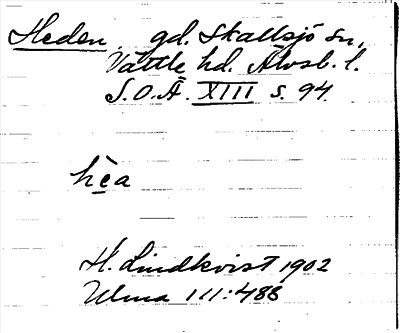 Heden, gd. Skallsjö sn,
Vättle hd. Älvsb. l.
S.O.Ä. XIII s. 94.
hèa
H. Lindkvist 1902
Ulma 111:488